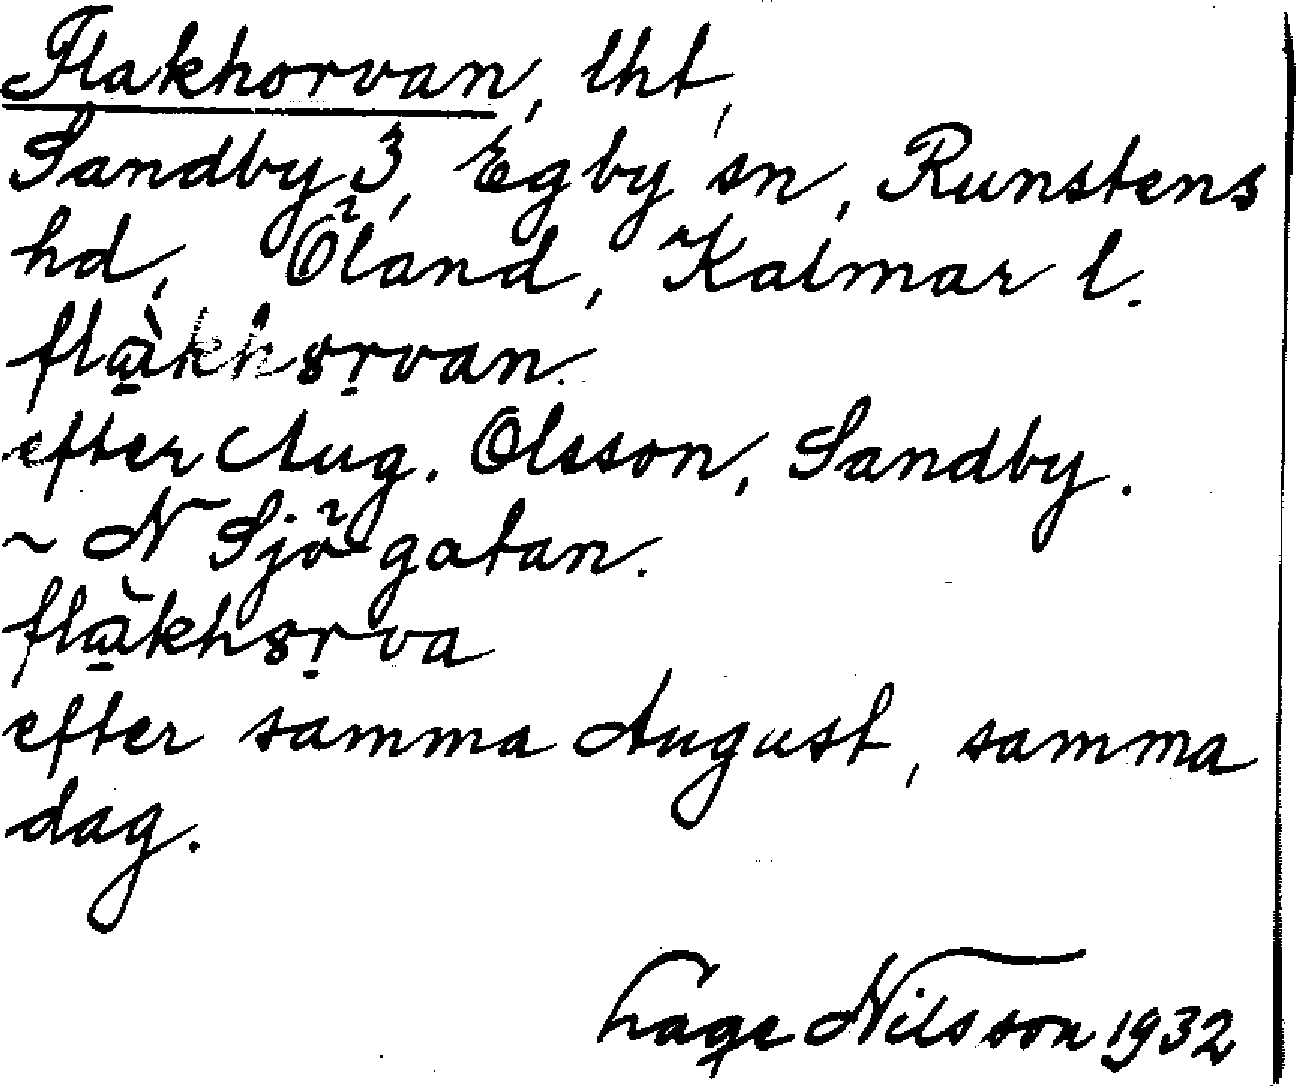 Flakhorvan, lht,
Sandby 3, Egby sn, Runstens
hd, Öland, Kalmar l.
flà̱khꝏṛvan.
efter Aug. Olsson, Sandby.
~ N Sjögatan.
flà̱khꝏṛva
efter samma August, samma
dag.
Lage Nilsson 1932